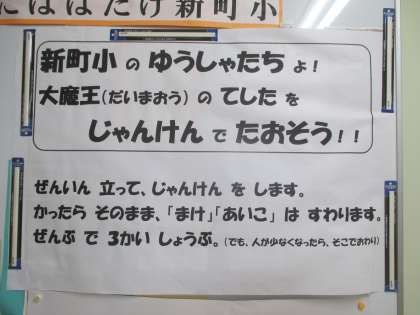 にははたけ新町小
新町小 の ゆうしゃたち よ!
大魔王(だいまおう) の てした を
じゃんけん で たおそう!!
ぜんいん 立って、じゃんけん を します。
かったら そのまま、「まけ」「あいこ」 は すわります。
ぜんぶ で 3かい しょうぶ。(でも、人が少なくなったら、そこでおわり)